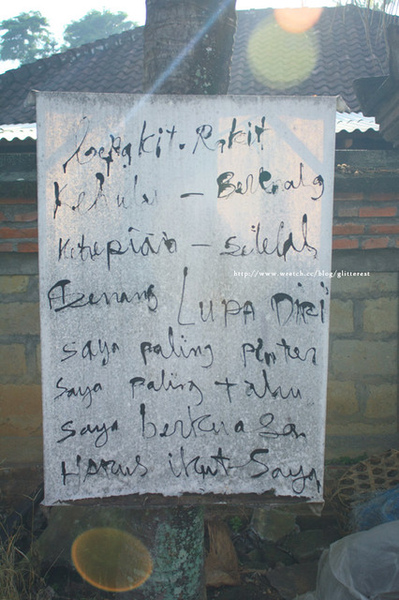 berakit-Rakit
Kehulu - Berenang
Ketepian - Setelah
http://www.wretch.cc/blog/glitterest
Senang LUPA DIRI
saya paling pinter
saya paling tahu
saya berkuasa
HARUS ikut Saya